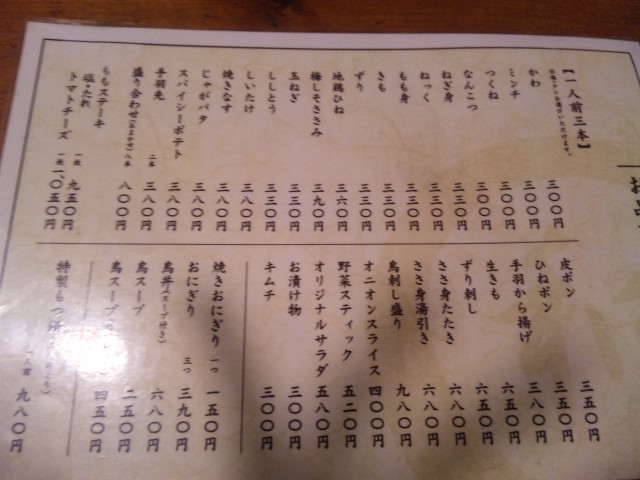 【一人前三本】
かわ 三〇〇円
ミンチ 三〇〇円
つくね 三〇〇円
なんこつ 三〇〇円
ねぎ身 三三〇円
ねっく 三三〇円
もも身 三三〇円
きも 三三〇円
ずり 三三〇円
地鶏ひね 三六〇円
梅しそささみ 三九〇円
玉ねぎ 三三〇円
ししとう 三三〇円
しいたけ 三八〇円
焼きなす 三八〇円
じゃがバタ 三八〇円
スパイシーポテト 三八〇円
手羽先 二本 三八〇円
盛り合わせ(おまかせ)八本 八〇〇円
ももステーキ
塩・たれ 一枚 九五〇円
トマトチーズ 一枚 一、〇五〇円
皮ポン 三五〇円
ひねポン 三五〇円
手羽から揚げ 三八〇円
生きも 六五〇円
ずり刺し 六五〇円
ささ身たたき 六八〇円
ささ身湯引き 六八〇円
鳥刺し盛り 九八〇円
オニオンスライス 四〇〇円
野菜スティック 五二〇円
オリジナルサラダ 五八〇円
お漬け物 三〇〇円
キムチ 三〇〇円
焼きおにぎり 一つ 一五〇円
おにぎり 三つ 三九〇円
鳥丼(スープ付き) 六八〇円
鳥スープ 二五〇円
鳥スープ 四五〇円
特製もつ 一人前 九八〇円